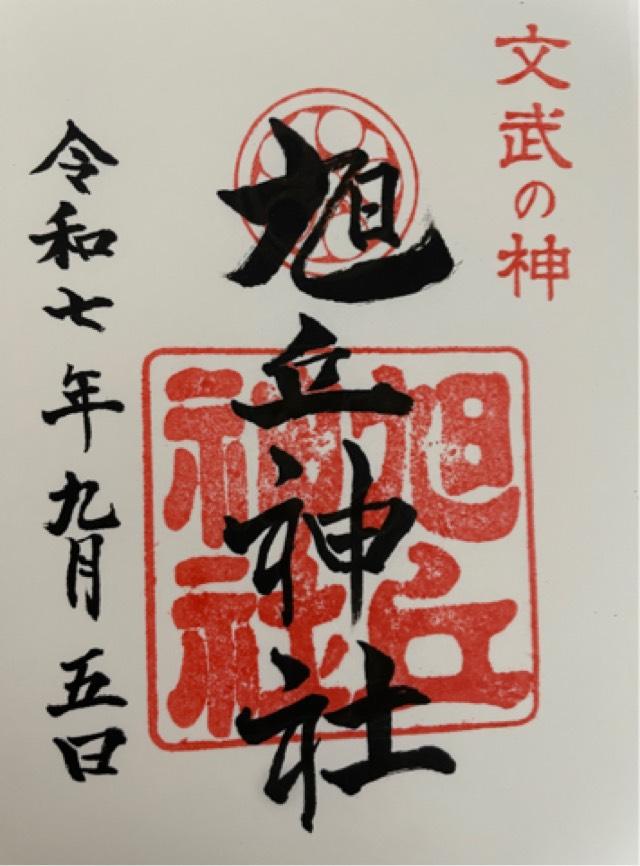 文武の神
旭丘神社
旭丘
神社
令和七年九月五日